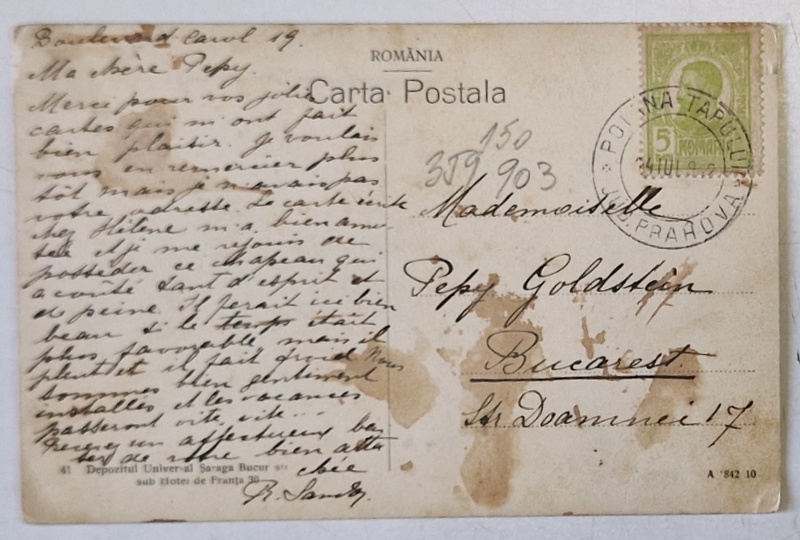 Boulevard Carol 19.
Ma chère Pepy.
Merci pour vos jolies
cartes qui m'ont fait
bien plaisir. Je voulais
vous en remercier plus
tôt mais je n'avais pas
votre adresse. La carte écrite
chez Hélène m'a bien amu
sée et je me réjouis de
posséder ce chapeau qui
a coûté tant d'esprit et
de peine. Il ferait ici bien
beau si le temps était
plus favorable, mais il
pleut et il fait froid. Nous
sommes bien gentiment
installés et les vacances
passeront vite, vite...
Recevez un affectueux bai
ser de votre bien atta
chée
R.
ROMÂNIA
Carta Postala
150
359 903
5
ROMANIA
POIANA TAPULUI
JUD. PRAHOVA
Mademoiselle
Pepy Goldstein
Bucarest.
Str Doamnei 17
41 Depozitul Univer-al Șaraga Bucur
sub Hotel de Franța 30
A 842 10